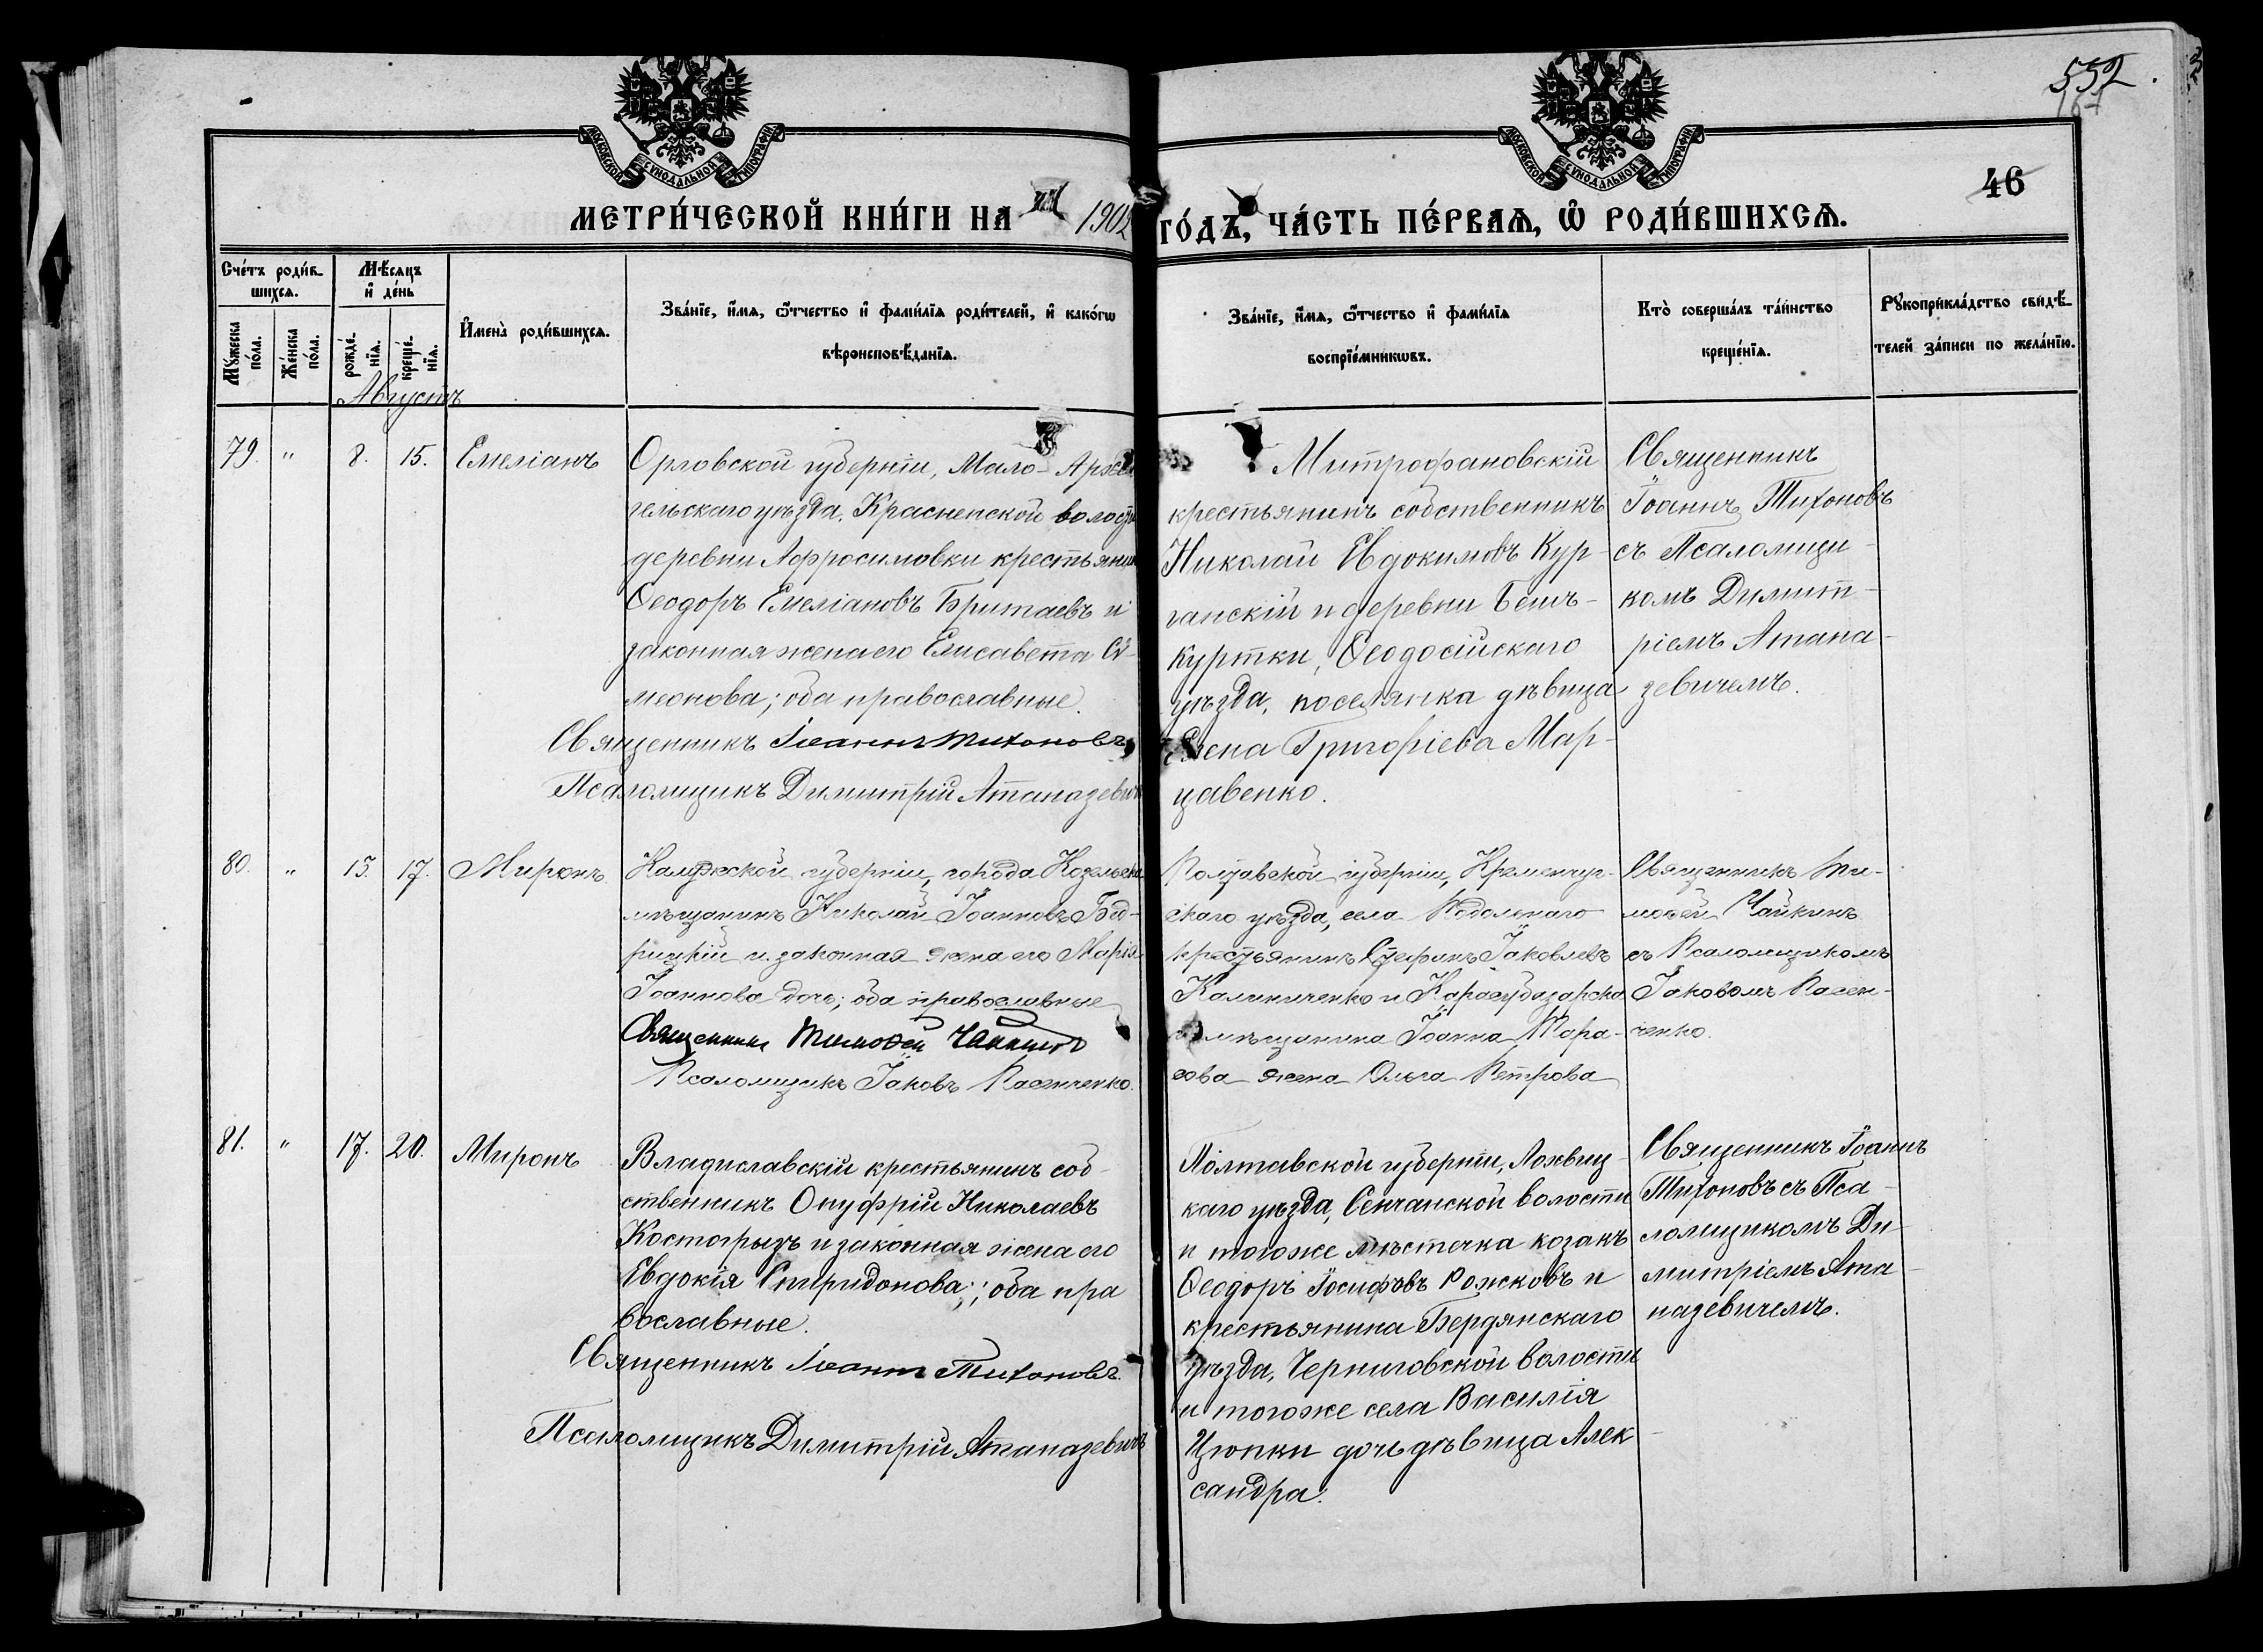 552.
46
МОСКОВСКОЙ СѴНОДАЛЬНОЙ ТИПОГРАФІИ
МОСКОВСКОЙ СѴНОДАЛЬНОЙ ТИПОГРАФІИ
МЕТРИ́ЧЕСКОЙ КНИ́ГИ НА 1902 ГО́ДЪ, ЧА́СТЬ ПЕ́РВАѦ, Ѡ҆ РОДИ́ВШИХСѦ.
Сче́тъ роди́в-
шихсѧ.
Мѣ́сѧцъ
и҆ де́нь
Мꙋ́жеска
по́ла.
Же́нска
по́ла.
рожде́-
нїѧ.
креще́-
нїѧ.
И҆мена̀ роди́вшихсѧ.
Зва́нїе, и҆́мѧ, ѻ҆́тчество и҆ фами́лїѧ роди́телей, и҆ како́гѡ
вѣроисповѣ́данїѧ.
Зва́нїе, и҆́мѧ, ѻ҆́тчество и҆ фами́лїѧ
воспрїе́мникѡвъ.
Кто̀ соверша́лъ та́инство
креще́нїѧ.
Рꙋкоприкла́дство свидѣ́-
телей за́писи по жела́нїю.
Августъ
79. " 8. 15. Емеліанъ
Орловской губерніи, Мало-Архан
гельскаго уѣзда, Красненской волости
деревни Афросимовки крестьянинъ
Ѳеодоръ Емеліановъ Бритаевъ и
законная жена его Елисавета Си-
меонова; оба православные.
Священникъ Іоаннъ Тихоновъ
Псаломщикъ Димитрій Атаназевичъ
Митрофановскій
крестьянинъ собственникъ
Николай Евдокимовъ Кур-
ганскій и деревни Бешъ-
Куртки, Ѳеодосійскаго
уѣзда, поселянка дѣвица
Елена Григоріева Мар-
цавенко.
Священникъ
Іоаннъ Тихоновъ
съ Псаломщи-
комъ Димит-
ріемъ Атана-
зевичемъ.
80. " 15. 17. Миронъ.
Калужской губерніи, города Козельска
мѣщанинъ Николай Іоанновъ Бод-
рицкій и законная жена его Марія
Іоаннова дочь; оба православные
Священникъ Тимоѳей Чайкинъ
Псаломщикъ Іаковъ Пасенченко.
Полтавской губерніи, Кременчуг-
скаго уѣзда, села Подольнаго
крестьянинъ Стефанъ Іаковлевъ
Калиниченко и Карасубазарска
го мѣщанина Іоанна Тара-
сова жена Ольга Петрова
Священникъ Ти-
моѳей Чайкинъ
съ Псаломщикомъ
Іаковомъ Пасен-
ченко.
81. " 17. 20. Миронъ
Владиславскій крестьянинъ соб-
ственникъ Онуфрій Николаевъ
Костогрызъ и законная жена его
Евдокія Спиридонова; оба пра
вославные.
Священникъ Іоаннъ Тихоновъ.
Псаломщикъ Димитрій Атаназевичъ
Полтавской губерніи, Лохвиц-
каго уѣзда, Сенчанской волости
и тогоже мѣстечка козакъ
Ѳеодоръ Іосифовъ Рожковъ и
крестьянина Бердянскаго
уѣзда, Черниговской волости
и тогоже села Василія
Цюпки дочь дѣвица Алек-
сандра.
Священникъ Іоаннъ
Тихоновъ съ Пса-
ломщикомъ Ди-
митріемъ Ата-
назевичемъ.